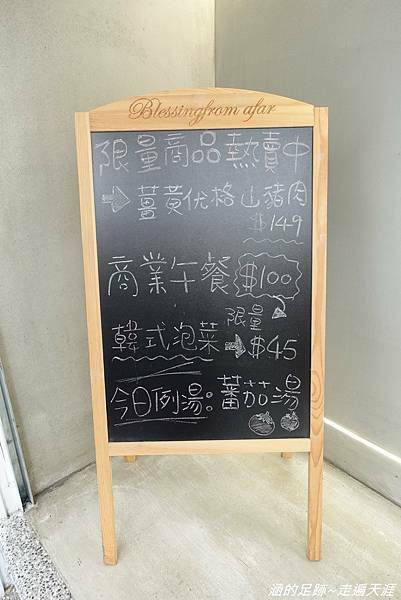 Blessingfrom afar
限量商品熱賣中
→薑黃优格山豬肉
$149
商業午餐 $100
限量
韓式泡菜→$45
今日例湯:蕃茄湯
涵的足跡~走遍天涯